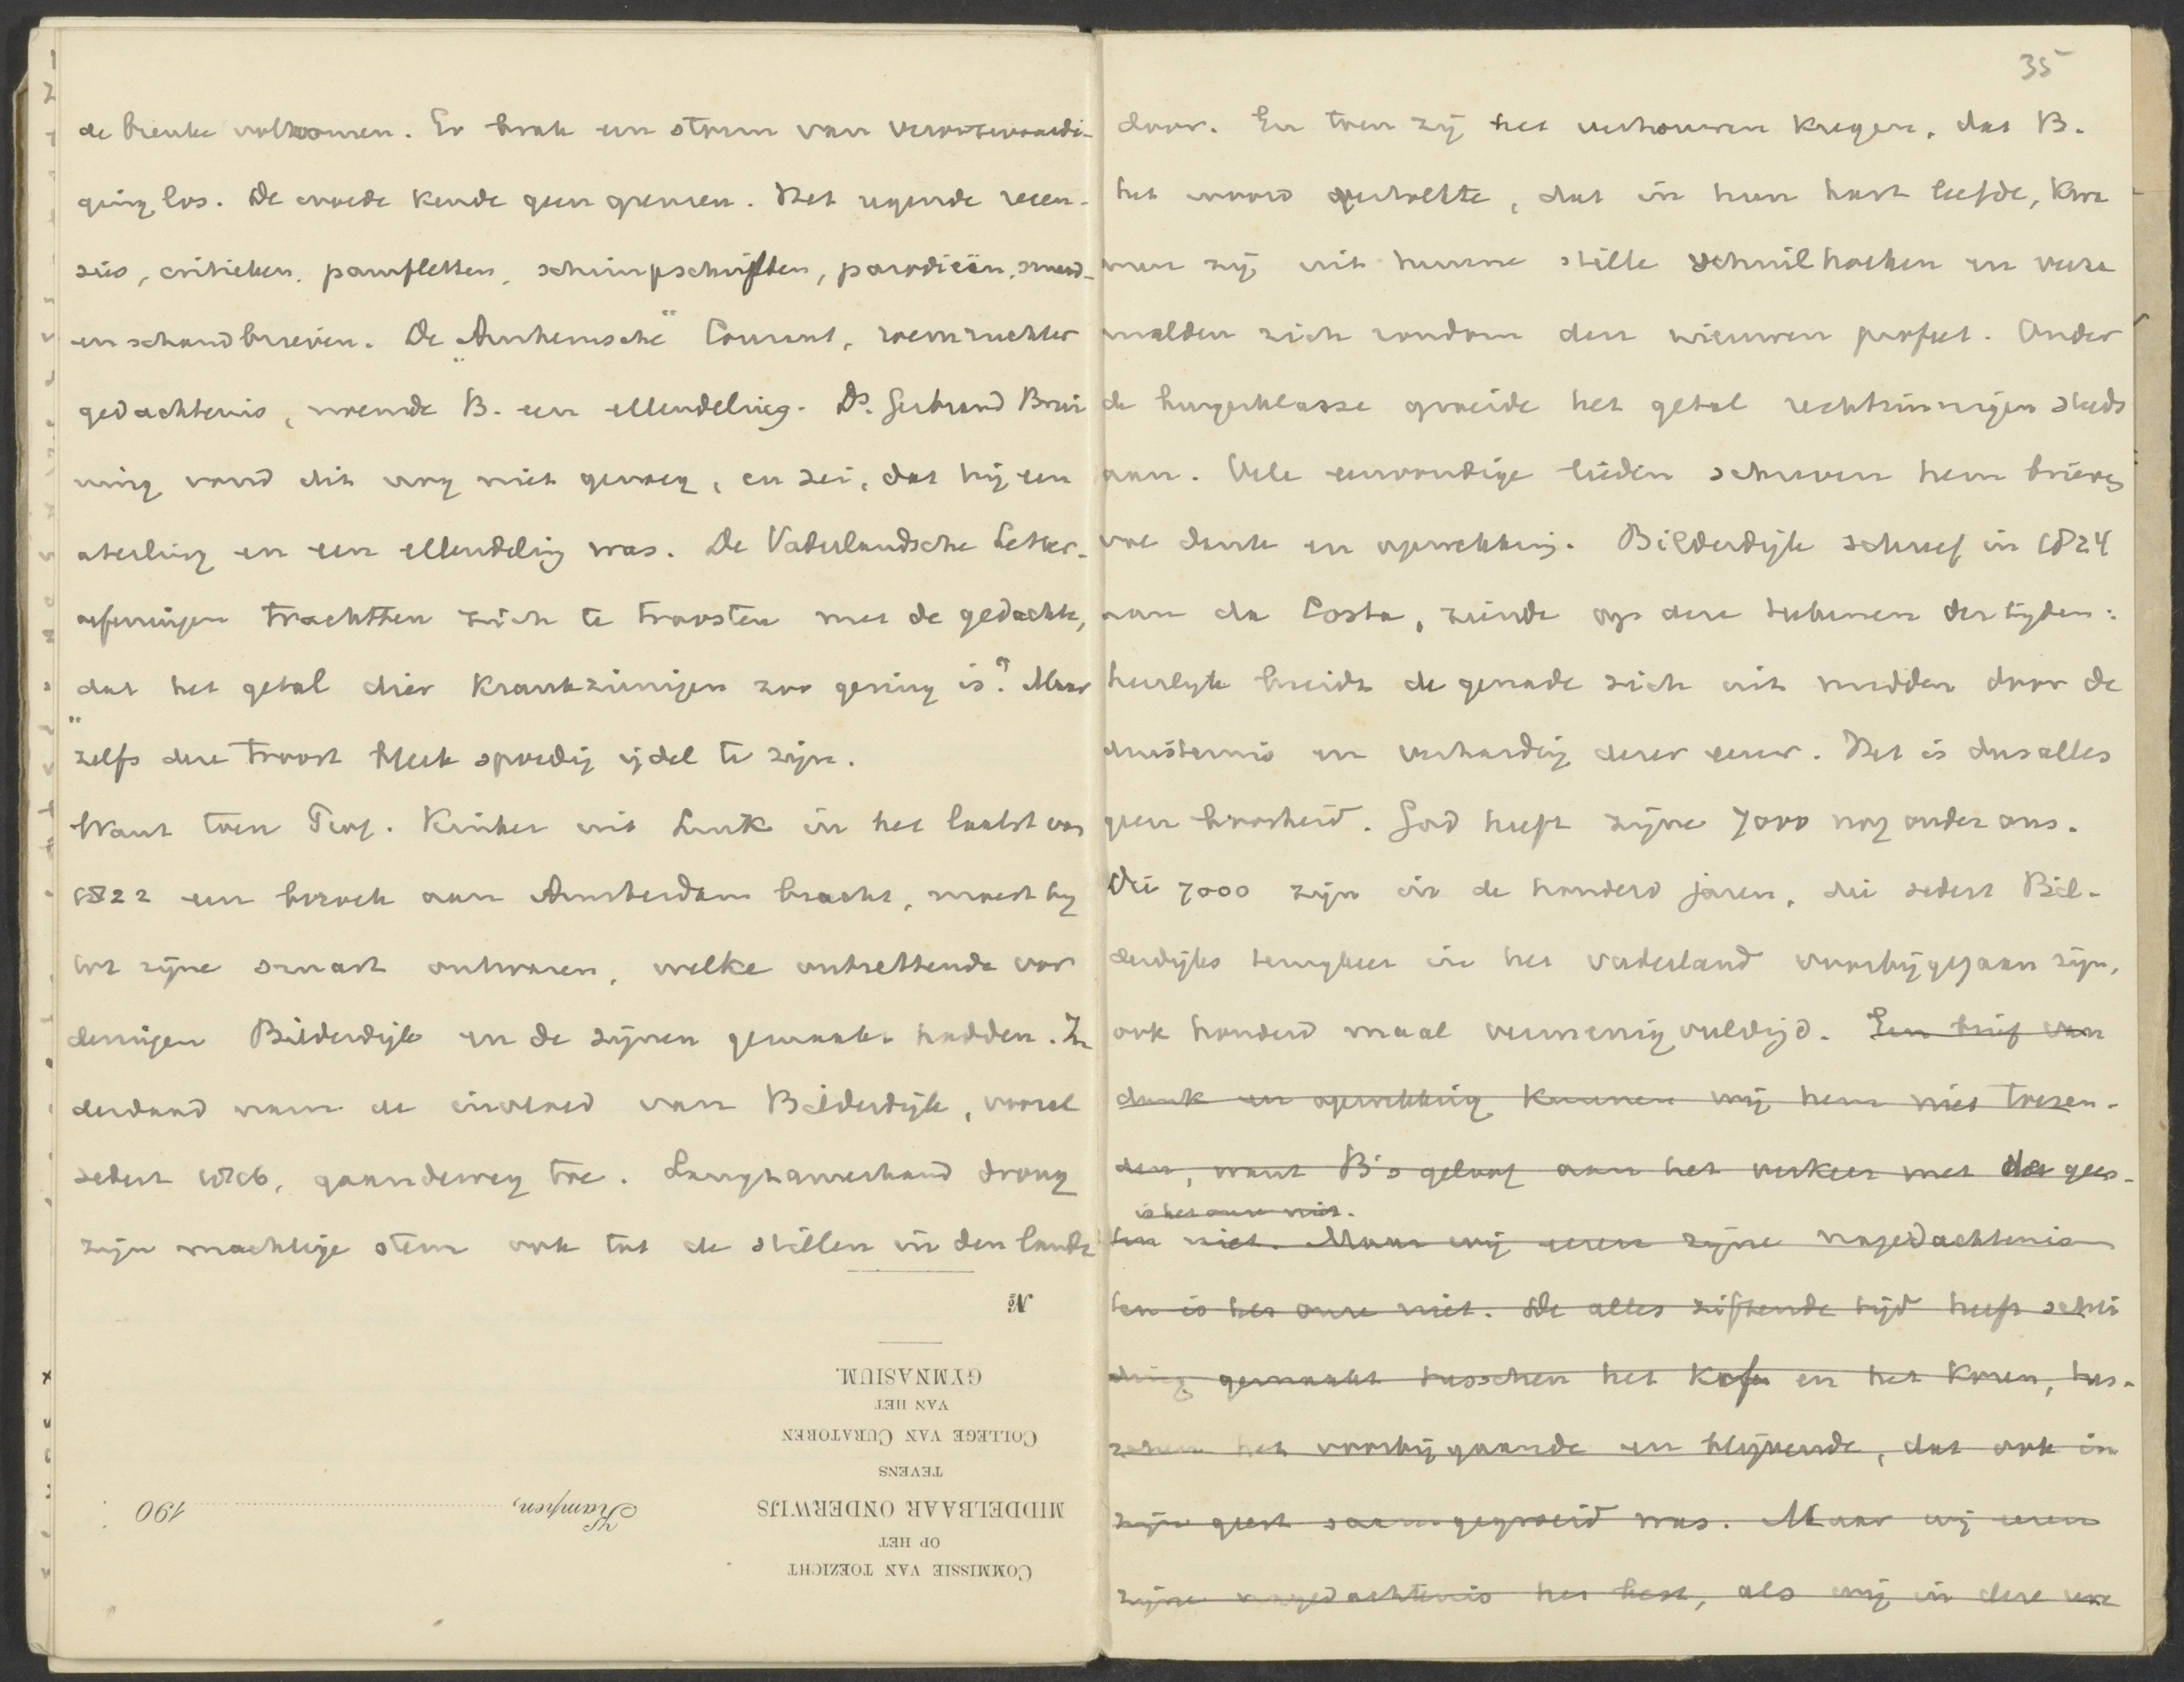 de breuke volkomen. Er brak een storm van verontwaardi-
ging los. De woede kende geen grenzen. Het regende recen-
sies, critieken, pamfletten, schimpschriften, parodieën, smaad-
en schandbrieven. De "Arnhemsche" Courant, roemruchter
gedachtenis, noemde B. een ellendeling. Ds. Gerbrand Brui
ning vond dit nog niet genoeg, en zei, dat hij een
aterling en een ellendeling was. De Vaderlandsche Letter-
oefeningen trachtten zich te troosten met de gedachte,
"dat het getal dier krankzinnigen zoo gering is". Maar
zelfs deze troost bleek spoedig ijdel te zijn.
Want toen Prof. Kinker uit Luik in het laatst van
1822 een bezoek aan Amsterdam bracht, moest hij
tot zijne smart ontwaren, welke ontzettende vor
deringen Bilderdijk en de zijnen gemaakt hadden. In
derdaad nam de invloed van Bilderdijk, vooral
sedert 1826, gaandeweg toe. Langzamerhand drong
zijn machtige stem ook tot de stillen in den lande
No
GYMNASIUM.
VAN HET
COLLEGE VAN CURATOREN
TEVENS
MIDDELBAAR ONDERWIJS
Kampen, 190
OP HET
COMMISSIE VAN TOEZICHT
35
door. En toen zij het vertrouwen kregen, dat B.
het woord vertolkte, dat in hun hart leefde, kwa
men zij uit hunne stille schuilhoeken en verza
melden zich rondom den nieuwen profeet. Onder
de burgerklasse groeide het getal rechtzinnigen steeds
aan. Vele eenvoudige lieden schreven hem brieven
van dank en opwekking. Bilderdijk schreef in 1824
aan da Costa, ziende op deze teekenen der tijden:
heerlijk breidt de genade zich uit midden door de
duisternis en verharding dezer eeuw. Het is dus alles
geen boosheid. God heeft zijne 7000 nog onder ons.
Die 7000 zijn in de honderd jaren, die sedert Bil-
derdijks terugkeer in het vaderland voorbijgegaan zijn,
ook honderd maal vermenigvuldigd. Een brief van
dank en opwekking kunnen wij hem niet toezen-
den, want B's geloof aan het verkeer met der gees-
is het onze niet.
ten niet. Maar wij eeren zijne nagedachtenis
ten is het onze niet. De alles ziftende tijd heeft schei
ding gemaakt tusschen het kaf en het koren, tus-
schen het voorbijgaande en blijvende, dat ook in
zijn geest saamgegroeid was. Maar wij eeren
zijne nagedachtenis het best, als wij in deze